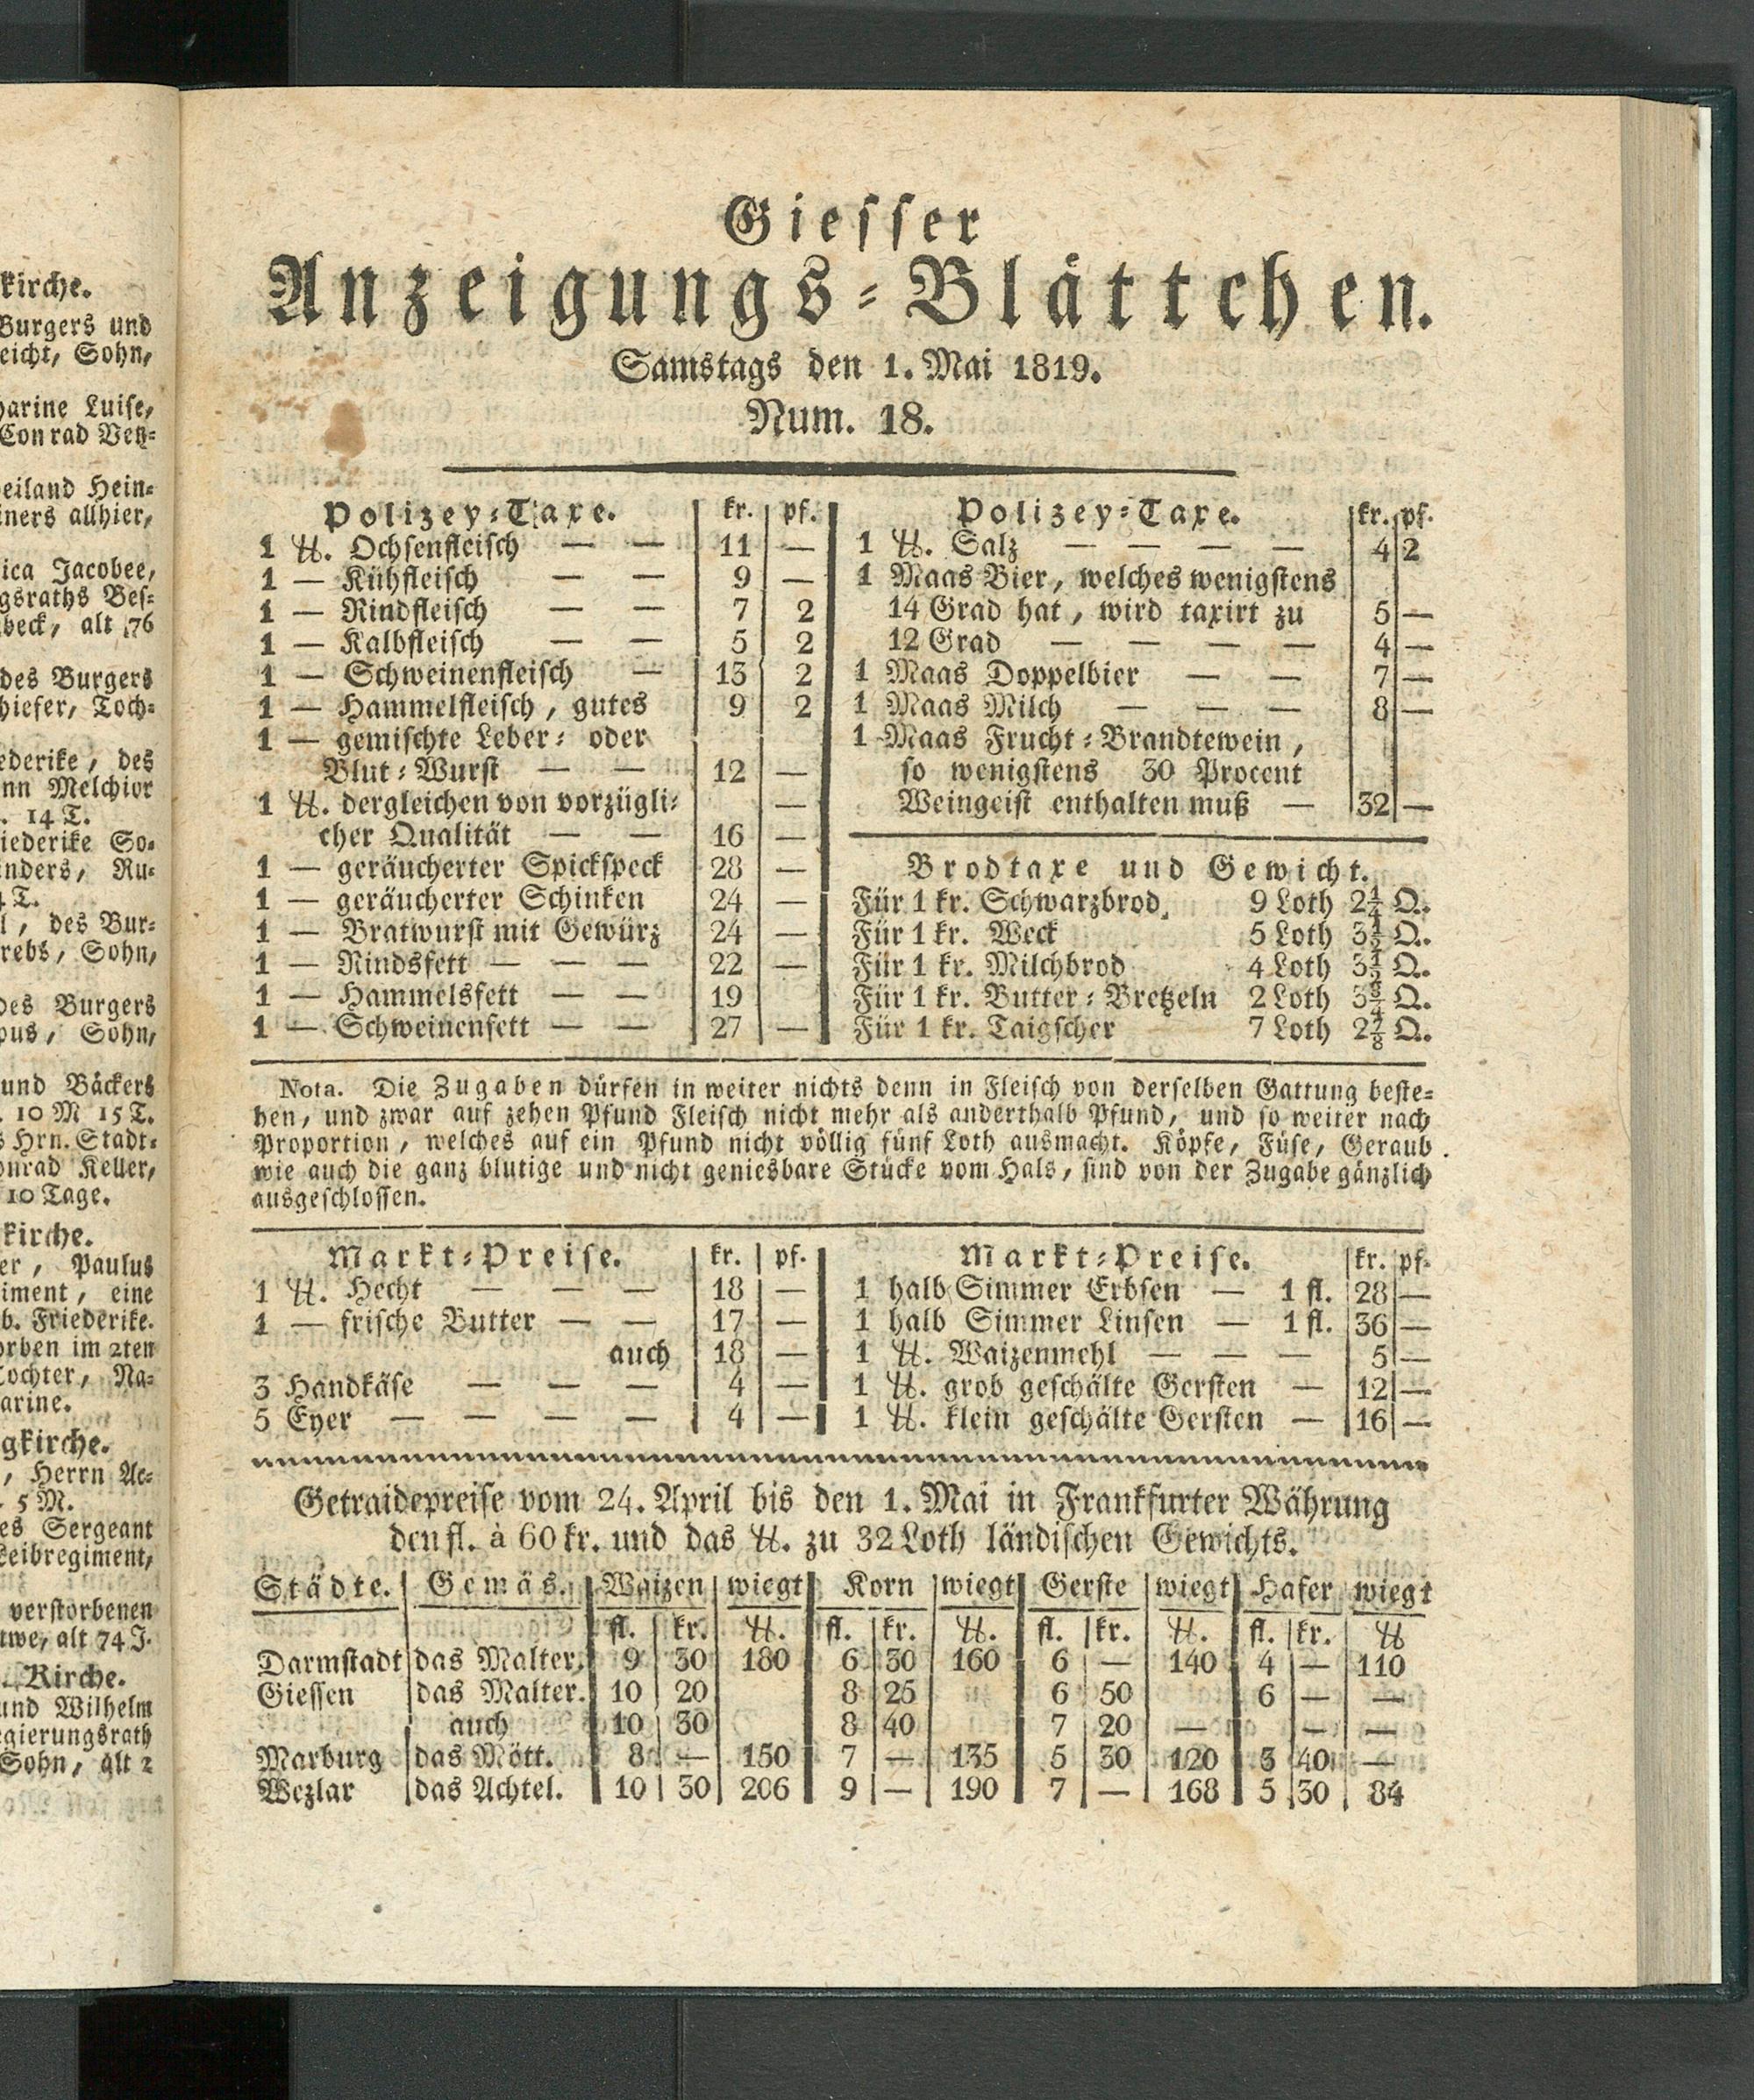 kirche.
Burgers und
eicht, Sohn,
harine Luise,
Conrad Vetz-
eiland Hein-
iners allhier,
ica Jacobee,
gsraths Bes-
beck, alt 76
des Burgers
hiefer, Toch-
ederike, des
nn Melchior
. 14 T.
iederike So-
nders, Ru-
4 T.
l, des Bur-
rebs, Sohn,
des Burgers
pus, Sohn,
und Bäckers
. 10 M 15 T.
s Hrn. Stadt-
onrad Keller,
10 Tage.
kirche.
er, Paulus
iment, eine
b. Friederike.
orben im 2ten
ochter, Na-
arine.
gkirche.
, Herrn Ac-
. 5 M.
es Sergeant
Leibregiment,
verstorbenen
twe, alt 74 J.
Kirche.
und Wilhelm
egierungsrath
Sohn, alt 2
Giesser
Anzeigungs-Blättchen.
Samstags den 1. Mai 1819.
Num. 18.
Polizey-Taxe. kr. pf.
1 ℔. Ochsenfleisch — — 11 —
1 — Kühfleisch — — 9 —
1 — Rindfleisch — — 7 2
1 — Kalbfleisch — — 5 2
1 — Schweinenfleisch — 13 2
1 — Hammelfleisch, gutes 9 2
1 — gemischte Leber- oder
Blut-Wurst — — 12 —
1 ℔. dergleichen von vorzügli- —
cher Qualität — — 16 —
1 — geräucherter Spickspeck 28 —
1 — geräucherter Schinken 24 —
1 — Bratwurst mit Gewürz 24 —
1 — Rindsfett — — — 22 —
1 — Hammelsfett — — 19
1 — Schweinenfett — — 27 —
Polizey-Taxe. kr. pf.
1 ℔. Salz — — — — 4 2
1 Maas Bier, welches wenigstens
14 Grad hat, wird taxirt zu 5 —
12 Grad — — — — 4 —
1 Maas Doppelbier — — 7 —
1 Maas Milch — — — 8 —
1 Maas Frucht-Brandtewein,
so wenigstens 30 Procent
Weingeist enthalten muß — 32 —
Brodtaxe und Gewicht.
Für 1 kr. Schwarzbrod, 9 Loth 2¼ Q.
Für 1 kr. Weck 5 Loth 3½ Q.
Für 1 kr. Milchbrod 4 Loth 3½ Q.
Für 1 kr. Butter-Bretzeln 2 Loth 3¾ Q.
Für 1 kr. Taigscher 7 Loth 2⅞ Q.
Nota. Die Zugaben dürfen in weiter nichts denn in Fleisch von derselben Gattung beste-
hen, und zwar auf zehen Pfund Fleisch nicht mehr als anderthalb Pfund, und so weiter nach
Proportion, welches auf ein Pfund nicht völlig fünf Loth ausmacht. Köpfe, Füse, Geraub
wie auch die ganz blutige und nicht geniesbare Stücke vom Hals, sind von der Zugabe gänzlich
ausgeschlossen.
Markt-Preise. kr. pf.
1 ℔. Hecht — — — 18 —
1 — frische Butter — — 17 —
auch 18 —
3 Handkäse — — — 4 —
5 Eyer — — — — 4 —
Markt-Preise. kr. pf.
1 halb Simmer Erbsen — 1 fl. 28 —
1 halb Simmer Linsen — 1 fl. 36 —
1 ℔. Waizenmehl — — — 5 —
1 ℔. grob geschälte Gersten — 12 —
1 ℔. klein geschälte Gersten — 16 —
Getraidepreise vom 24. April bis den 1. Mai in Frankfurter Währung
den fl. à 60 kr. und das ℔. zu 32 Loth ländischen Gewichts.
Städte. Gemäs. Waizen wiegt Korn wiegt Gerste wiegt Hafer wiegt
fl. kr. ℔. fl. kr. ℔. fl. kr. ℔. fl. kr. ℔
Darmstadt das Malter. 9 30 180 6 30 160 6 — 140 4 — 110
Giessen das Malter. 10 20 8 25 6 50 6 — —
auch 10 30 8 40 7 20 — — —
Marburg das Mött. 8 — 150 7 — 135 5 30 120 3 40 —
Wezlar das Achtel. 10 30 206 9 — 190 7 — 168 5 30 84